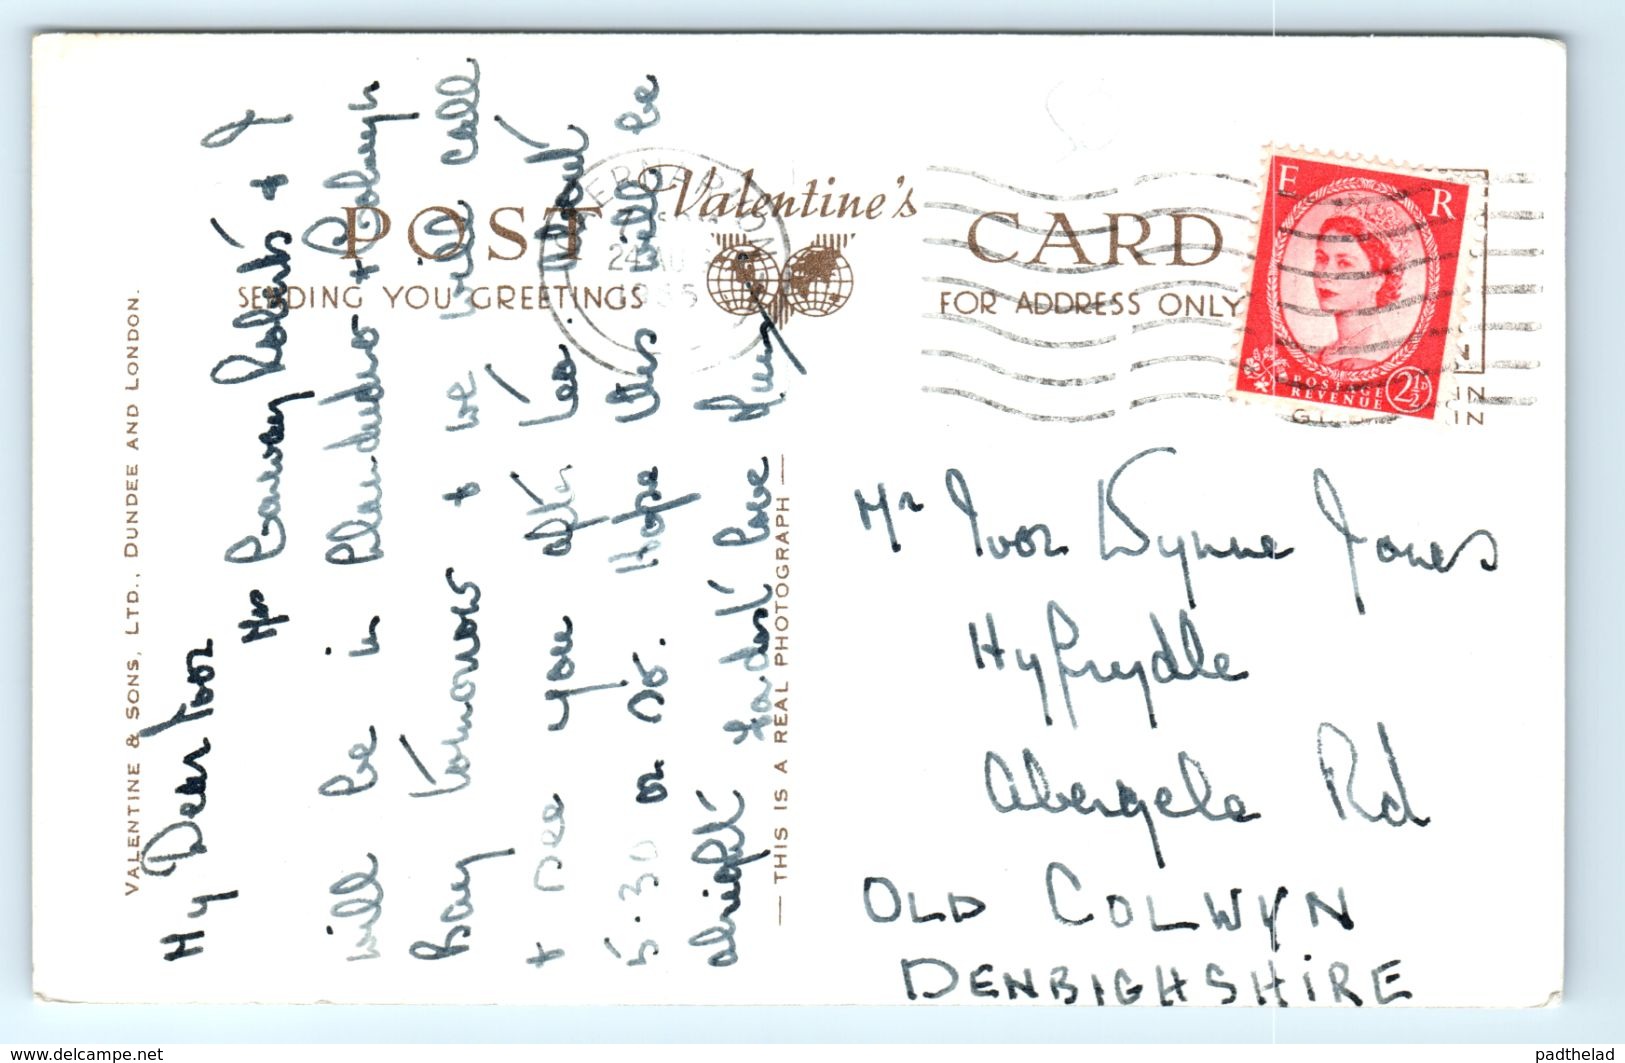 POST Valentine's CARD
SENDING YOU GREETINGS
FOR ADDRESS ONLY
VALENTINE & SONS, LTD., DUNDEE AND LONDON.
THIS IS A REAL PHOTOGRAPH
E R
POSTAGE
REVENUE
2½D
24 AU
My Dear Ivor
Mrs Conway Roberts & I
will be in Llandudno & Colwyn
Bay Tomorrow & we will call
& see you after tea. About
5.30 or so. Hope this will be
alright. Fondest love
Mr Ivor Wynne Jones
Hyfrydle
Abergele Rd
OLD COLWYN
DENBIGHSHIRE
delcampe.net
padthelad